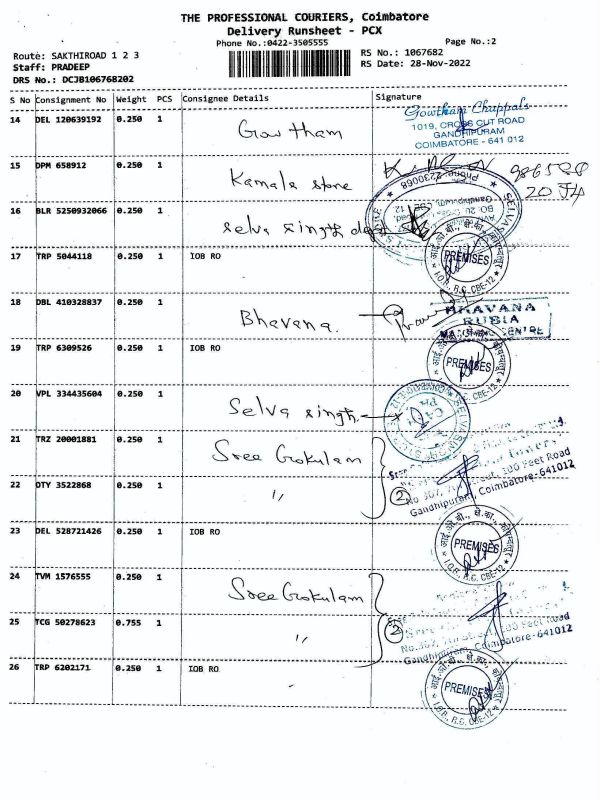 THE PROFESSIONAL COURIERS, Coimbatore
Delivery Runsheet - PCX
Phone No.:0422-3505555
Page No.:2
Route: SAKTHIROAD 1 2 3
RS No.: 1067682
Staff: PRADEEP
RS Date: 28-Nov-2022
DRS No.: DCJB1067682O2
S No Consignment No Weight PCS Consignee Details Signature
14 DEL 120639192 0.250 1 Gowtham
Gowtham Chappals
1019, CROSS CUT ROAD
GANDHIPURAM
COIMBATORE - 641 012
15 DPM 658912 0.250 1 Kamala store
Phone: 2230068
16 BLR 5250932066 0.250 1 selva singh
17 TRP 5044118 0.250 1 IOB RO
PREMISES
I.O.B., R.O. CBE-12
18 DBL 410328837 0.250 1 Bhavana.
BHAVANA
RUBIA
19 TRP 6309526 0.250 1 IOB RO
PREMISES
I.O.B., R.O. CBE-12
20 VPL 334435604 0.250 1 Selva singh
21 TRZ 20001881 0.250 1 Sree Gokulam
22 OTY 3522868 0.250 1 "
2
100 Feet Road
Gandhipuram, Coimbatore-641012
23 DEL 528721426 0.250 1 IOB RO
PREMISES
I.O.B., R.O. CBE-12
24 TVM 1576555 0.250 1 Sree Gokulam
25 TCG 50278623 0.755 1 "
2
100 Feet Road
Gandhipuram, Coimbatore-641012
26 TRP 6202171 0.250 1 IOB RO
PREMISES
I.O.B., R.O. CBE-12